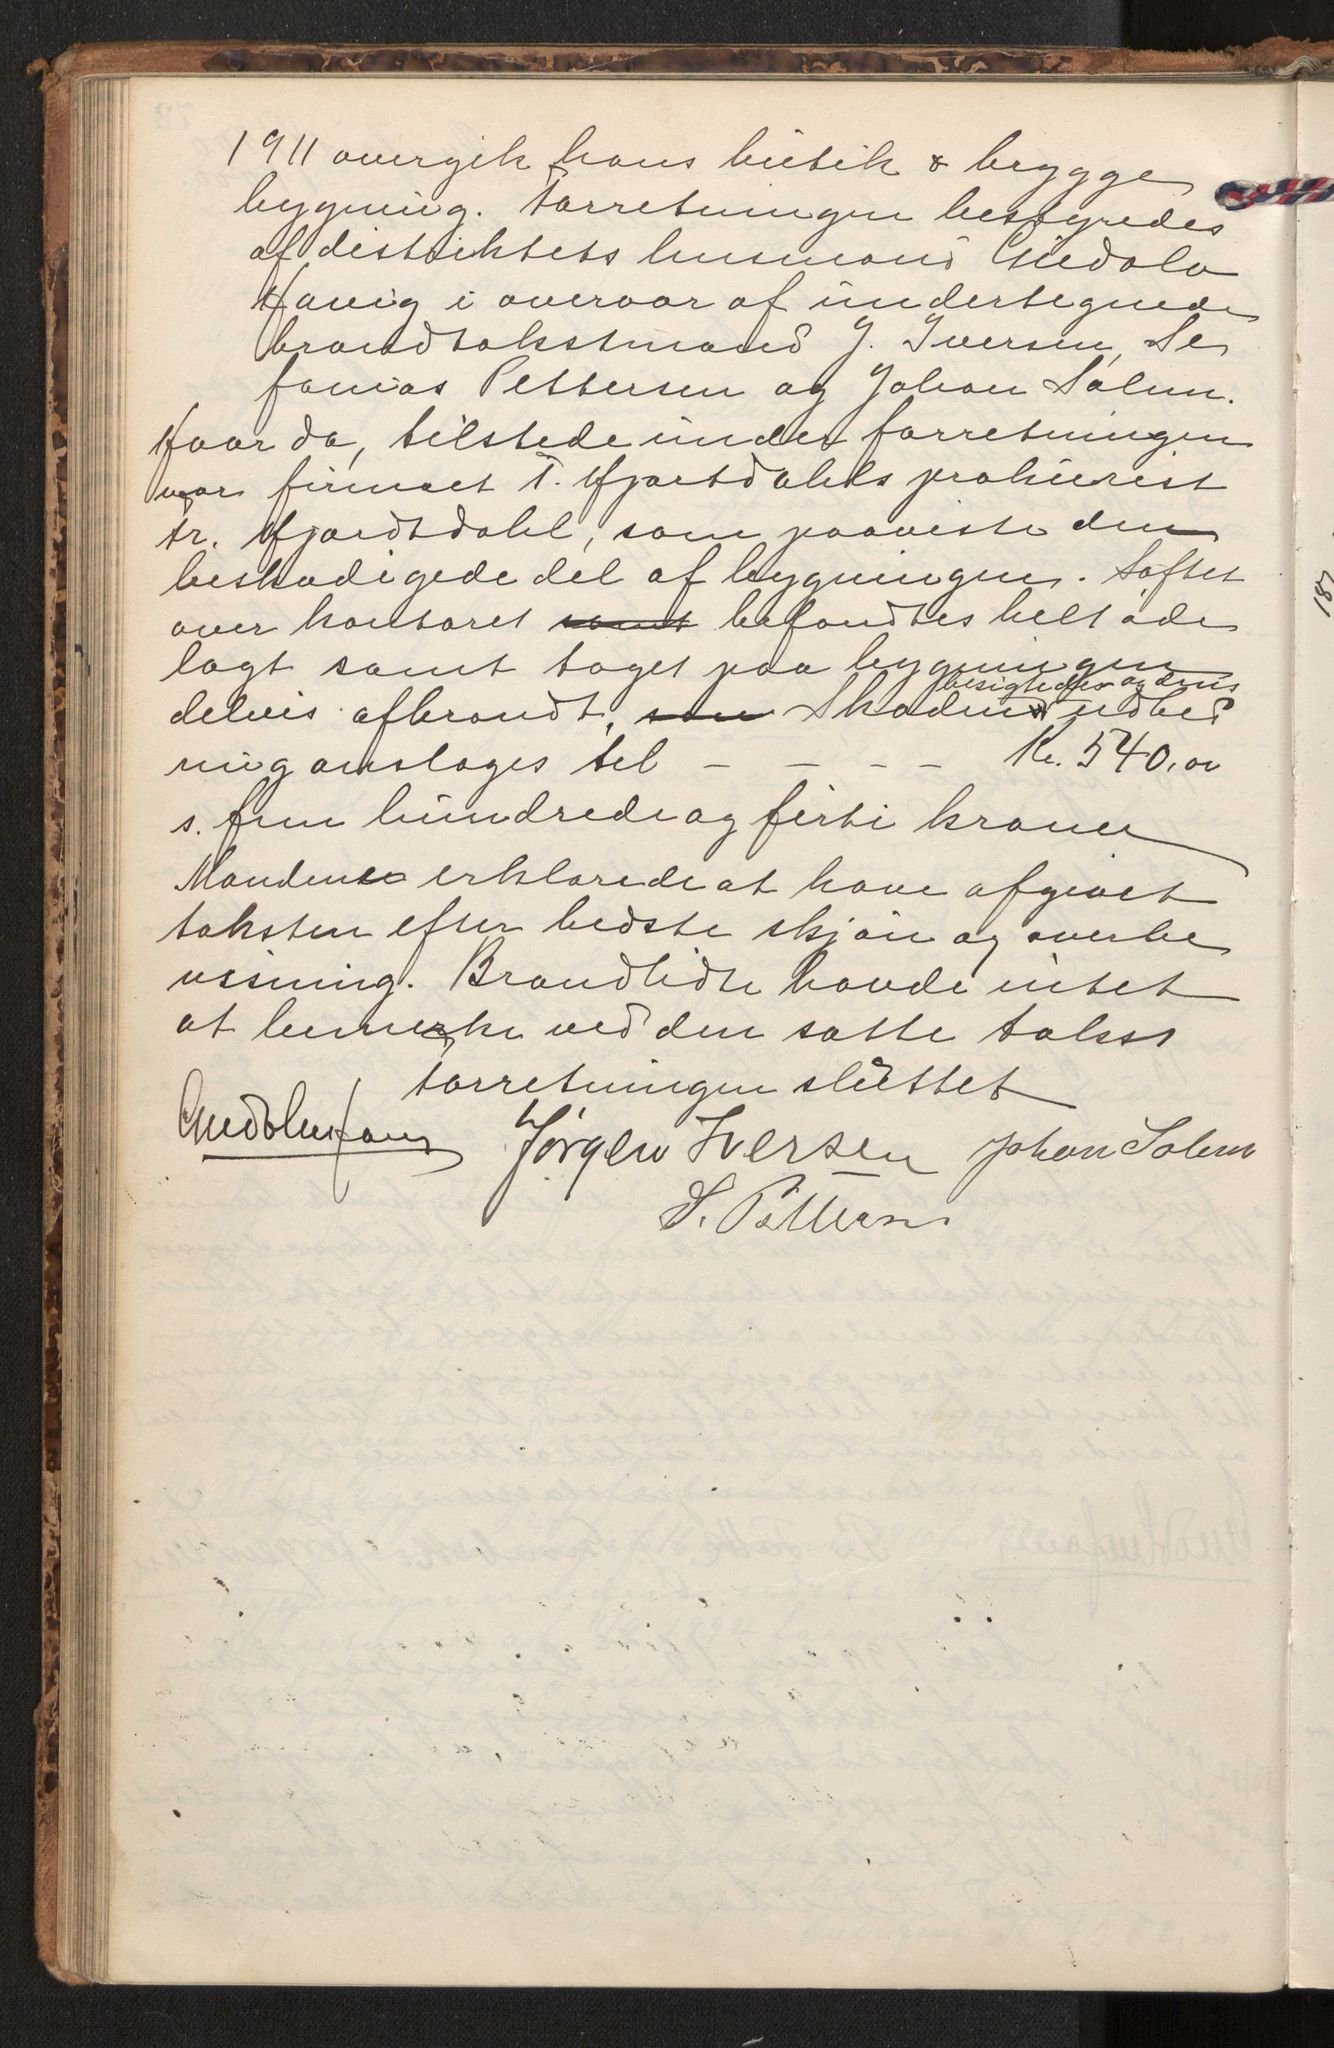 1911 overgik hans butik & brygge
bygning. Forretningen bestyredes
af distriktets lensmand Gudolv
Havig i overvær af undertegnede
brandtakstmænd J. Iversen, Se
fanias Pettersen og Johan Salem.
Hvorda, tilstede under forretningen
var firmaet T. Hjortdahls prokurist
Fr. Hjordtdahl, som paaviste den
beskadigede del af bygningen. Loftet
over kontoret samt befandtes helt øde
lagt samt taget paa bygningen
besigtedes og dens
delvis afbrandt, som Skaden udbed
ring ansloges til – – – – Kr. 540,00
s. fem hundrede og firti kroner
Mændene erklærede at have afgivet
taksten efter bedste skjøn og overbe
visning. Brandlidte havde intet
at bemerke ved den satte takst
Forretningen sluttet
Gudolv Havig Jørgen Iversen Johan Salem
S. Pettersen
187